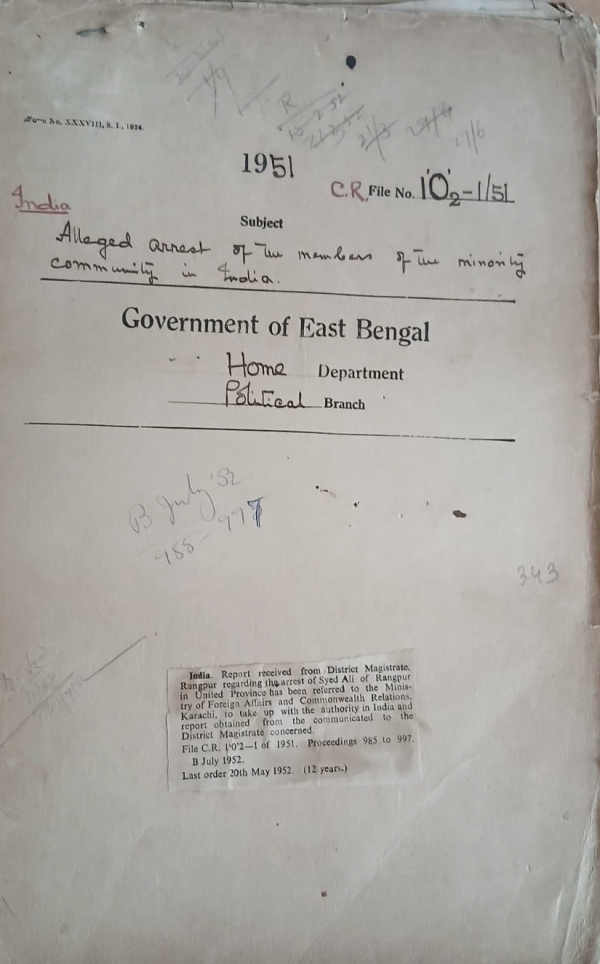 Form No. XXXVIII, S. I., 1924.
R
15-2-52
21/3
27/6
1951
C.R. File No. 1'0'2-1/51
India
Subject
Alleged arrest of the members of the minority
community in India.
Government of East Bengal
Home Department
Political Branch
B July '52
985-997
343
India. Report received from District Magistrate,
Rangpur regarding the arrest of Syed Ali of Rangpur
in United Province has been referred to the Minis-
try of Foreign Affairs and Commonwealth Relations,
Karachi, to take up with the authority in India and
report obtained from the communicated to the
District Magistrate concerned.
File C.R. 1'0'2—1 of 1951. Proceedings 985 to 997.
B July 1952.
Last order 20th May 1952. (12 years.)